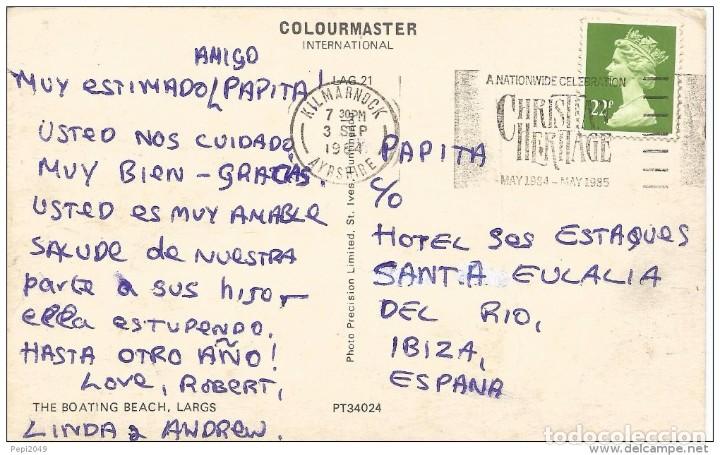 COLOURMASTER
INTERNATIONAL
AMIGO
MUY ESTIMADO PAPITA!
USTED NOS CUIDADO
MUY BIEN - GRACIAS.
USTED ES MUY AMABLE
SALUDE de NUESTRA
parte a sus hijo,
ella estupendo.
HASTA OTRO AÑO!
Love, Robert,
LINDA & ANDREW.
THE BOATING BEACH, LARGS
PT34024
Photo Precision Limited, St. Ives,
LAG 21
KILMARNOCK
7 30PM
3 SEP
1984
AYRSHIRE
A NATIONWIDE CELEBRATION
CHRISTIAN
HERITAGE
MAY 1984 - MAY 1985
22P
PAPITA
c/o
HOTEL SES ESTAQUES
SANTA EULALIA
DEL RIO,
IBIZA,
ESPANA
Pepi2049
todocoleccion.net